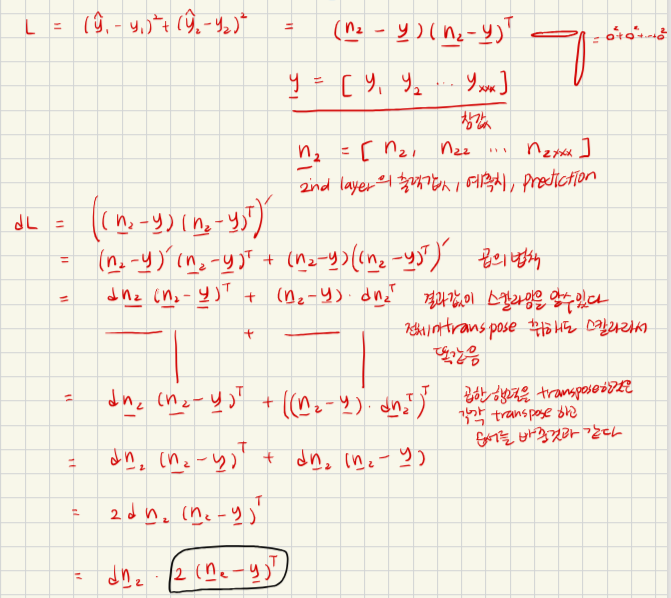 L = (ŷ₁ - y₁)² + (ŷ₂ - y₂)² = (n₂ - y)(n₂ - y)ᵀ = 0² + 0² + ... 0²
y = [ y₁ y₂ ... yₓₓₓ ]
참값
n₂ = [ n₂₁ n₂₂ ... n₂ₓₓₓ ]
2nd layer의 출력값, 예측치, prediction
dL = ((n₂ - y)(n₂ - y)ᵀ)′
= (n₂ - y)′(n₂ - y)ᵀ + (n₂ - y)((n₂ - y)ᵀ)′ 곱의 법칙
= dn₂ (n₂ - y)ᵀ + (n₂ - y) · dn₂ᵀ 결과값이 스칼라임을 알수있다
+ 전체에 transpose 취해도 스칼라라서
똑같음
= dn₂ (n₂ - y)ᵀ + ((n₂ - y) · dn₂ᵀ)ᵀ 곱한 행렬을 transpose한것은
각각 transpose 하고
순서를 바꾼것과 같다
= dn₂ (n₂ - y)ᵀ + dn₂ (n₂ - y)
= 2 dn₂ (n₂ - y)ᵀ
= dn₂ · 2 (n₂ - y)ᵀ